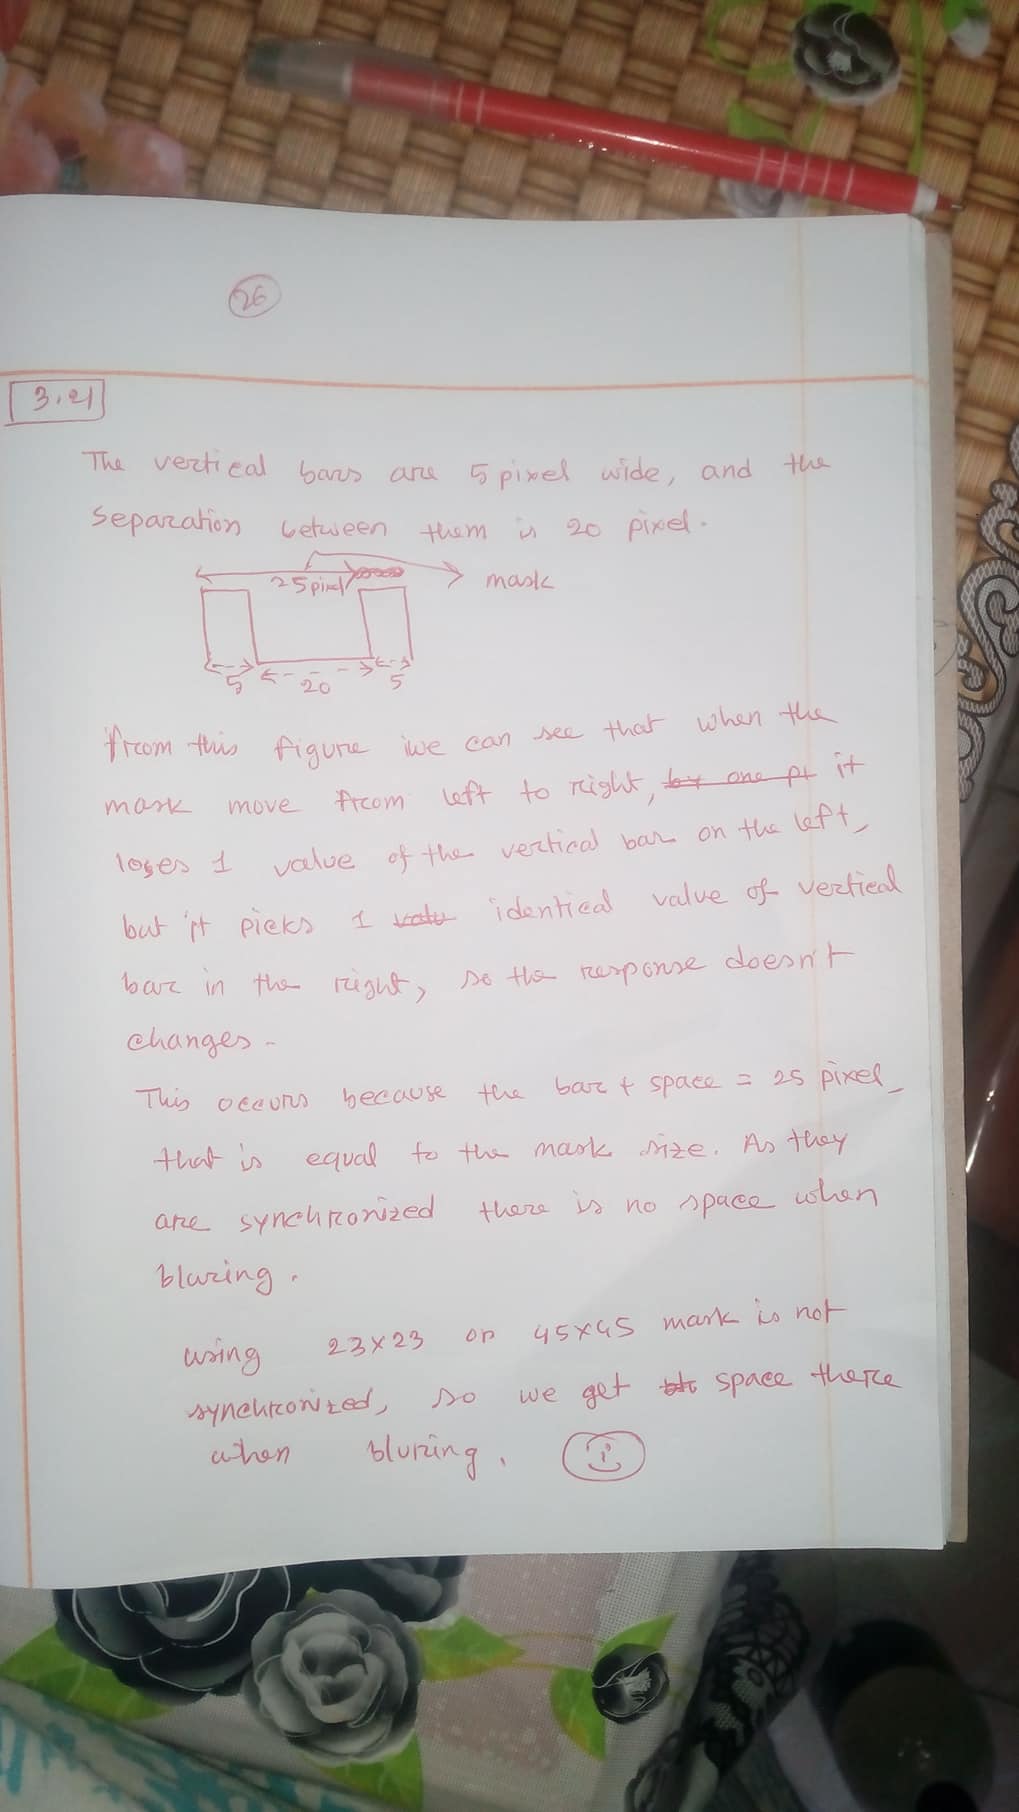 26
3.21
The vertical bars are 5 pixel wide, and the
separation between them is 20 pixel.
25 pixel
mask
5
20
5
from this figure we can see that when the
mask move from left to right, by one pt it
loses 1 value of the vertical bar on the left,
but it picks 1 valu identical value of vertical
bar in the right, so the response doesn't
changes.
This occurs because the bar + space = 25 pixel
that is equal to the mask size. As they
are synchronized there is no space when
bluring.
using 23x23 or 45x45 mask is not
synchronized, so we get space there
when bluring.